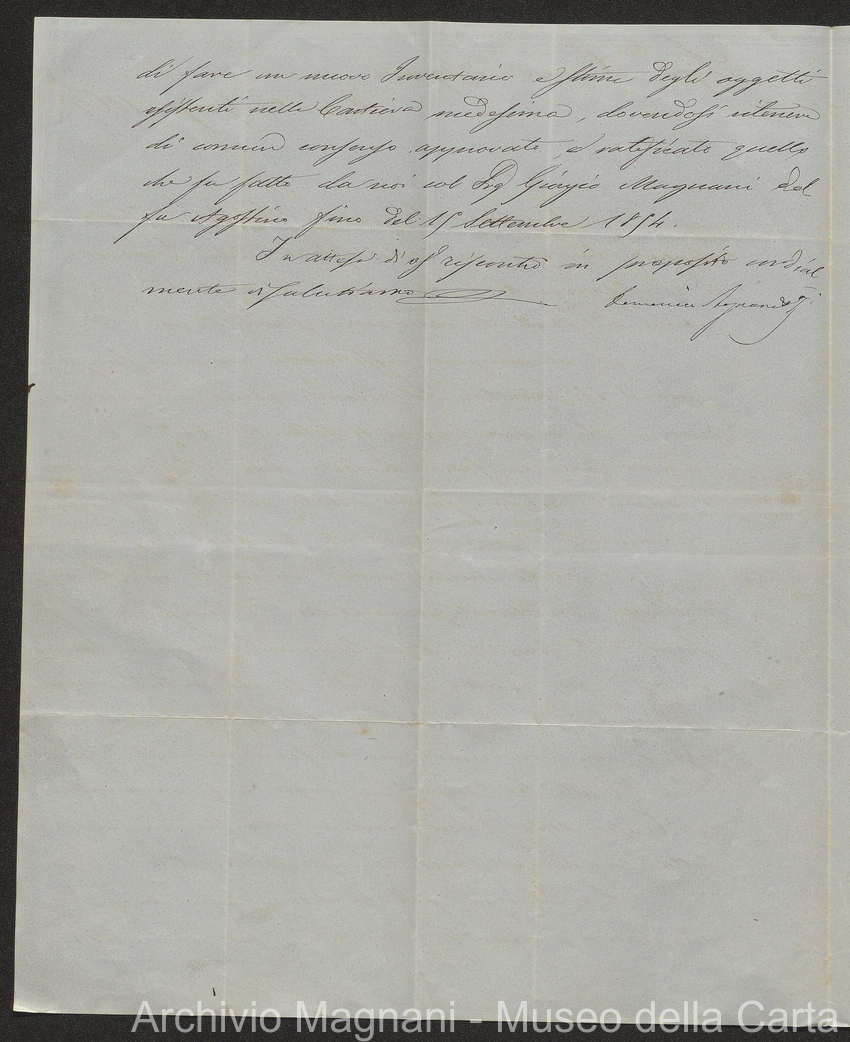 di fare un nuovo Inventario e Stime degli oggetti
esistenti nella Cartiera medesima, dovendosi ritenere
di comun consenso approvato, e ratificato quello
che fu fatto da noi col Sig Giorgio Magnani del
fu Agostino fino del 15 Settembre 1854.
In attesa di riscontro in proposito cordial
mente vi salutiamo
Domenico Magnani
Archivio Magnani - Museo della Carta